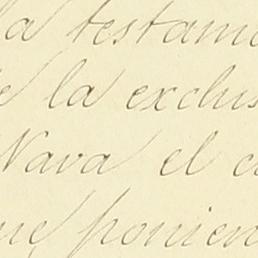 la testam
e la exclus
Nava el c
ue ponien